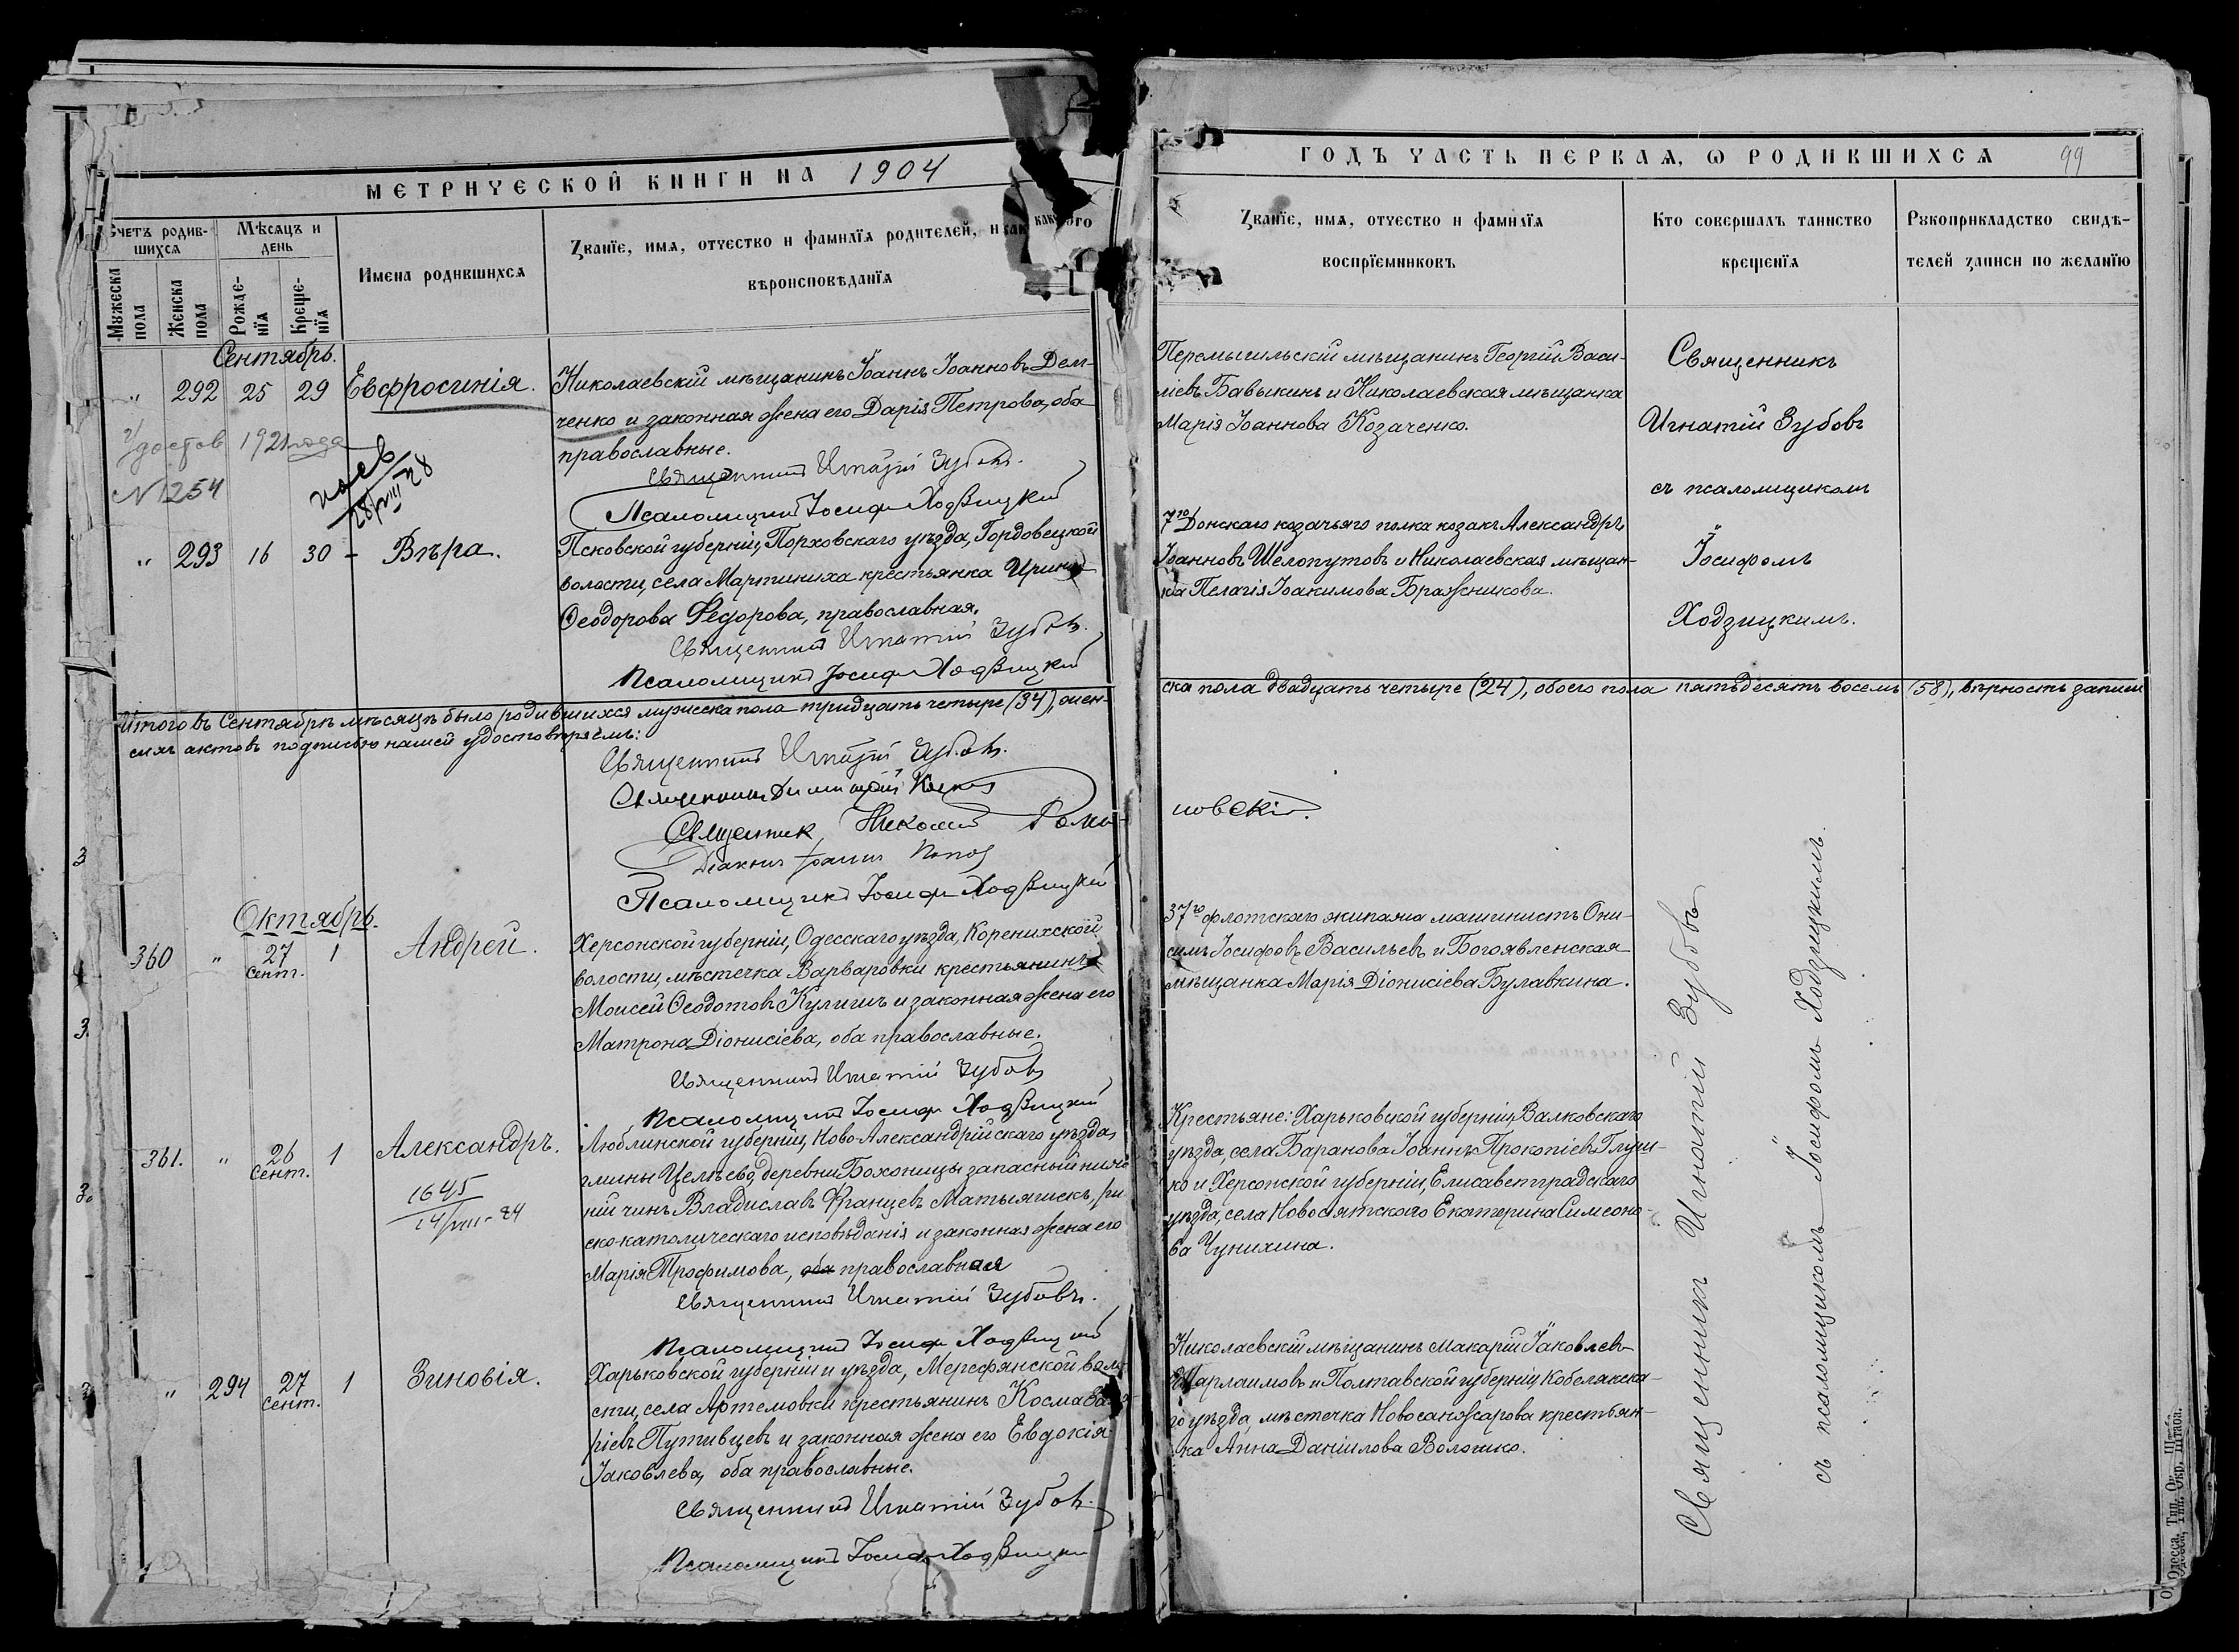 МЕТРИЧЕСКОЙ КНИГИ НА 1904
Счетъ родив-
шихся
Мѣсяцъ и
день
Мужеска
пола
Женска
пола
Рожде-
нїя
Креще-
нїя
Имена родившихся
Званїе, имя, отчество и фамилїя родителей, и
вѣроисповѣданїя
Сентябрь.
" 292 25 29 Евфросинія.
Николаевскій мѣщанинъ Іоаннъ Іоанновъ Дем-
ченко и законная жена его Дарія Петрова, оба
православные.
Удостов 1921 года
N 1254
28/VIII 28
Священникъ Игнатій Зубовъ.
Псаломщикъ Іосифъ Ходзицкій
" 293 16 30 - Вѣра.
Псковской губерніи, Порховскаго уѣзда, Гордовецкой
волости, села Мартиниха крестьянка Ирина
Ѳеодорова Федорова, православная.
Священникъ Игнатій Зубовъ.
Псаломщикъ Іосифъ Ходзицкій
Итого въ Сентябрѣ мѣсяцѣ было родившихся мужеска пола тридцать четыре (34), жен-
сихъ актовъ подписью нашей удостовѣряемъ:
Священникъ Игнатій Зубовъ.
Священникъ Димитрій
Священник Николай Рома-
Діаконъ Іоаннъ Попов
Псаломщикъ Іосифъ Ходзицкій
Октябрь.
360 " 27 сент. 1 Андрей.
Херсонской губерніи, Одесскаго уѣзда, Коренихской
волости, мѣстечка Варваровки крестьянинъ
Моисей Ѳеодотовъ Кулишъ и законная жена его
Матрона Діонисіева, оба православные.
Священникъ Игнатій Зубовъ
Псаломщикъ Іосифъ Ходзицкій
361. " 26 сент. 1 Александръ.
1645
14/VIII-84
Люблинской губерніи, Ново-Александрійскаго уѣзда,
гмины Целѣево, деревни Бохоницы запасный ниж-
ній чинъ Владиславъ Францевъ Матыяшекъ, ри
ско-католическаго исповѣданія и законная жена его
Марія Трофимова, оба православная
Священникъ Игнатій Зубовъ.
Псаломщикъ Іосифъ Ходзицкій
" 294 27 сент. 1 Зиновія.
Харьковской губерніи и уѣзда, Мерефянской воло-
сти, села Артемовки крестьянинъ Косма
ріевъ Путивцевъ и законная жена его Евдокія
Іаковлева, оба православные.
Священникъ Игнатій Зубовъ.
Псаломщикъ Іосифъ Ходзицкій
ГОДЪ ЧАСТЬ ПЕРВАЯ, Ѡ РОДИВШИХСЯ 99
Званїе, имя, отчество и фамилїя
воспрїемниковъ
Кто совершалъ таинство
крещенїя
Рукоприкладство свидѣ-
телей записи по желанїю
Перемышльскій мѣщанинъ Георгій Васи-
ліевъ Бавыкинъ и Николаевская мѣщанка
Марія Іоаннова Козаченко.
Священникъ
Игнатій Зубовъ
съ псаломщикомъ
Іосифомъ
Ходзицкимъ.
7го Донскаго козачьяго полка козакъ Александръ
Іоанновъ Шелопутовъ и Николаевская мѣщан-
ка Пелагія Іоакимова Бражникова.
ска пола двадцать четыре (24), обоего пола пятьдесятъ восемь (58), вѣрность записи
новскій.
37го флотскаго экипажа машинистъ Они-
симъ Іосифовъ Васильевъ и Богоявленская
мѣщанка Марія Діонисіева Булавкина.
Крестьяне: Харьковской губерніи, Валковскаго
уѣзда, села Баранова Іоаннъ Прокопіевъ Глуш-
ко и Херсонской губерніи, Елисаветградскаго
уѣзда, села Новосвятскаго Екатерина Симеоно-
ва Чунихина.
Николаевскій мѣщанинъ Макарій Іаковлев-
Шарлаимовъ и Полтавской губерніи Кобелякска-
го уѣзда, мѣстечка Новосанжарова крестьян-
ка Анна Даніилова Волошко.
Священникъ Игнатій Зубовъ
съ псаломщикомъ Іосифомъ Ходзицкимъ.
Одесса, Тип. Окр. Штаба.